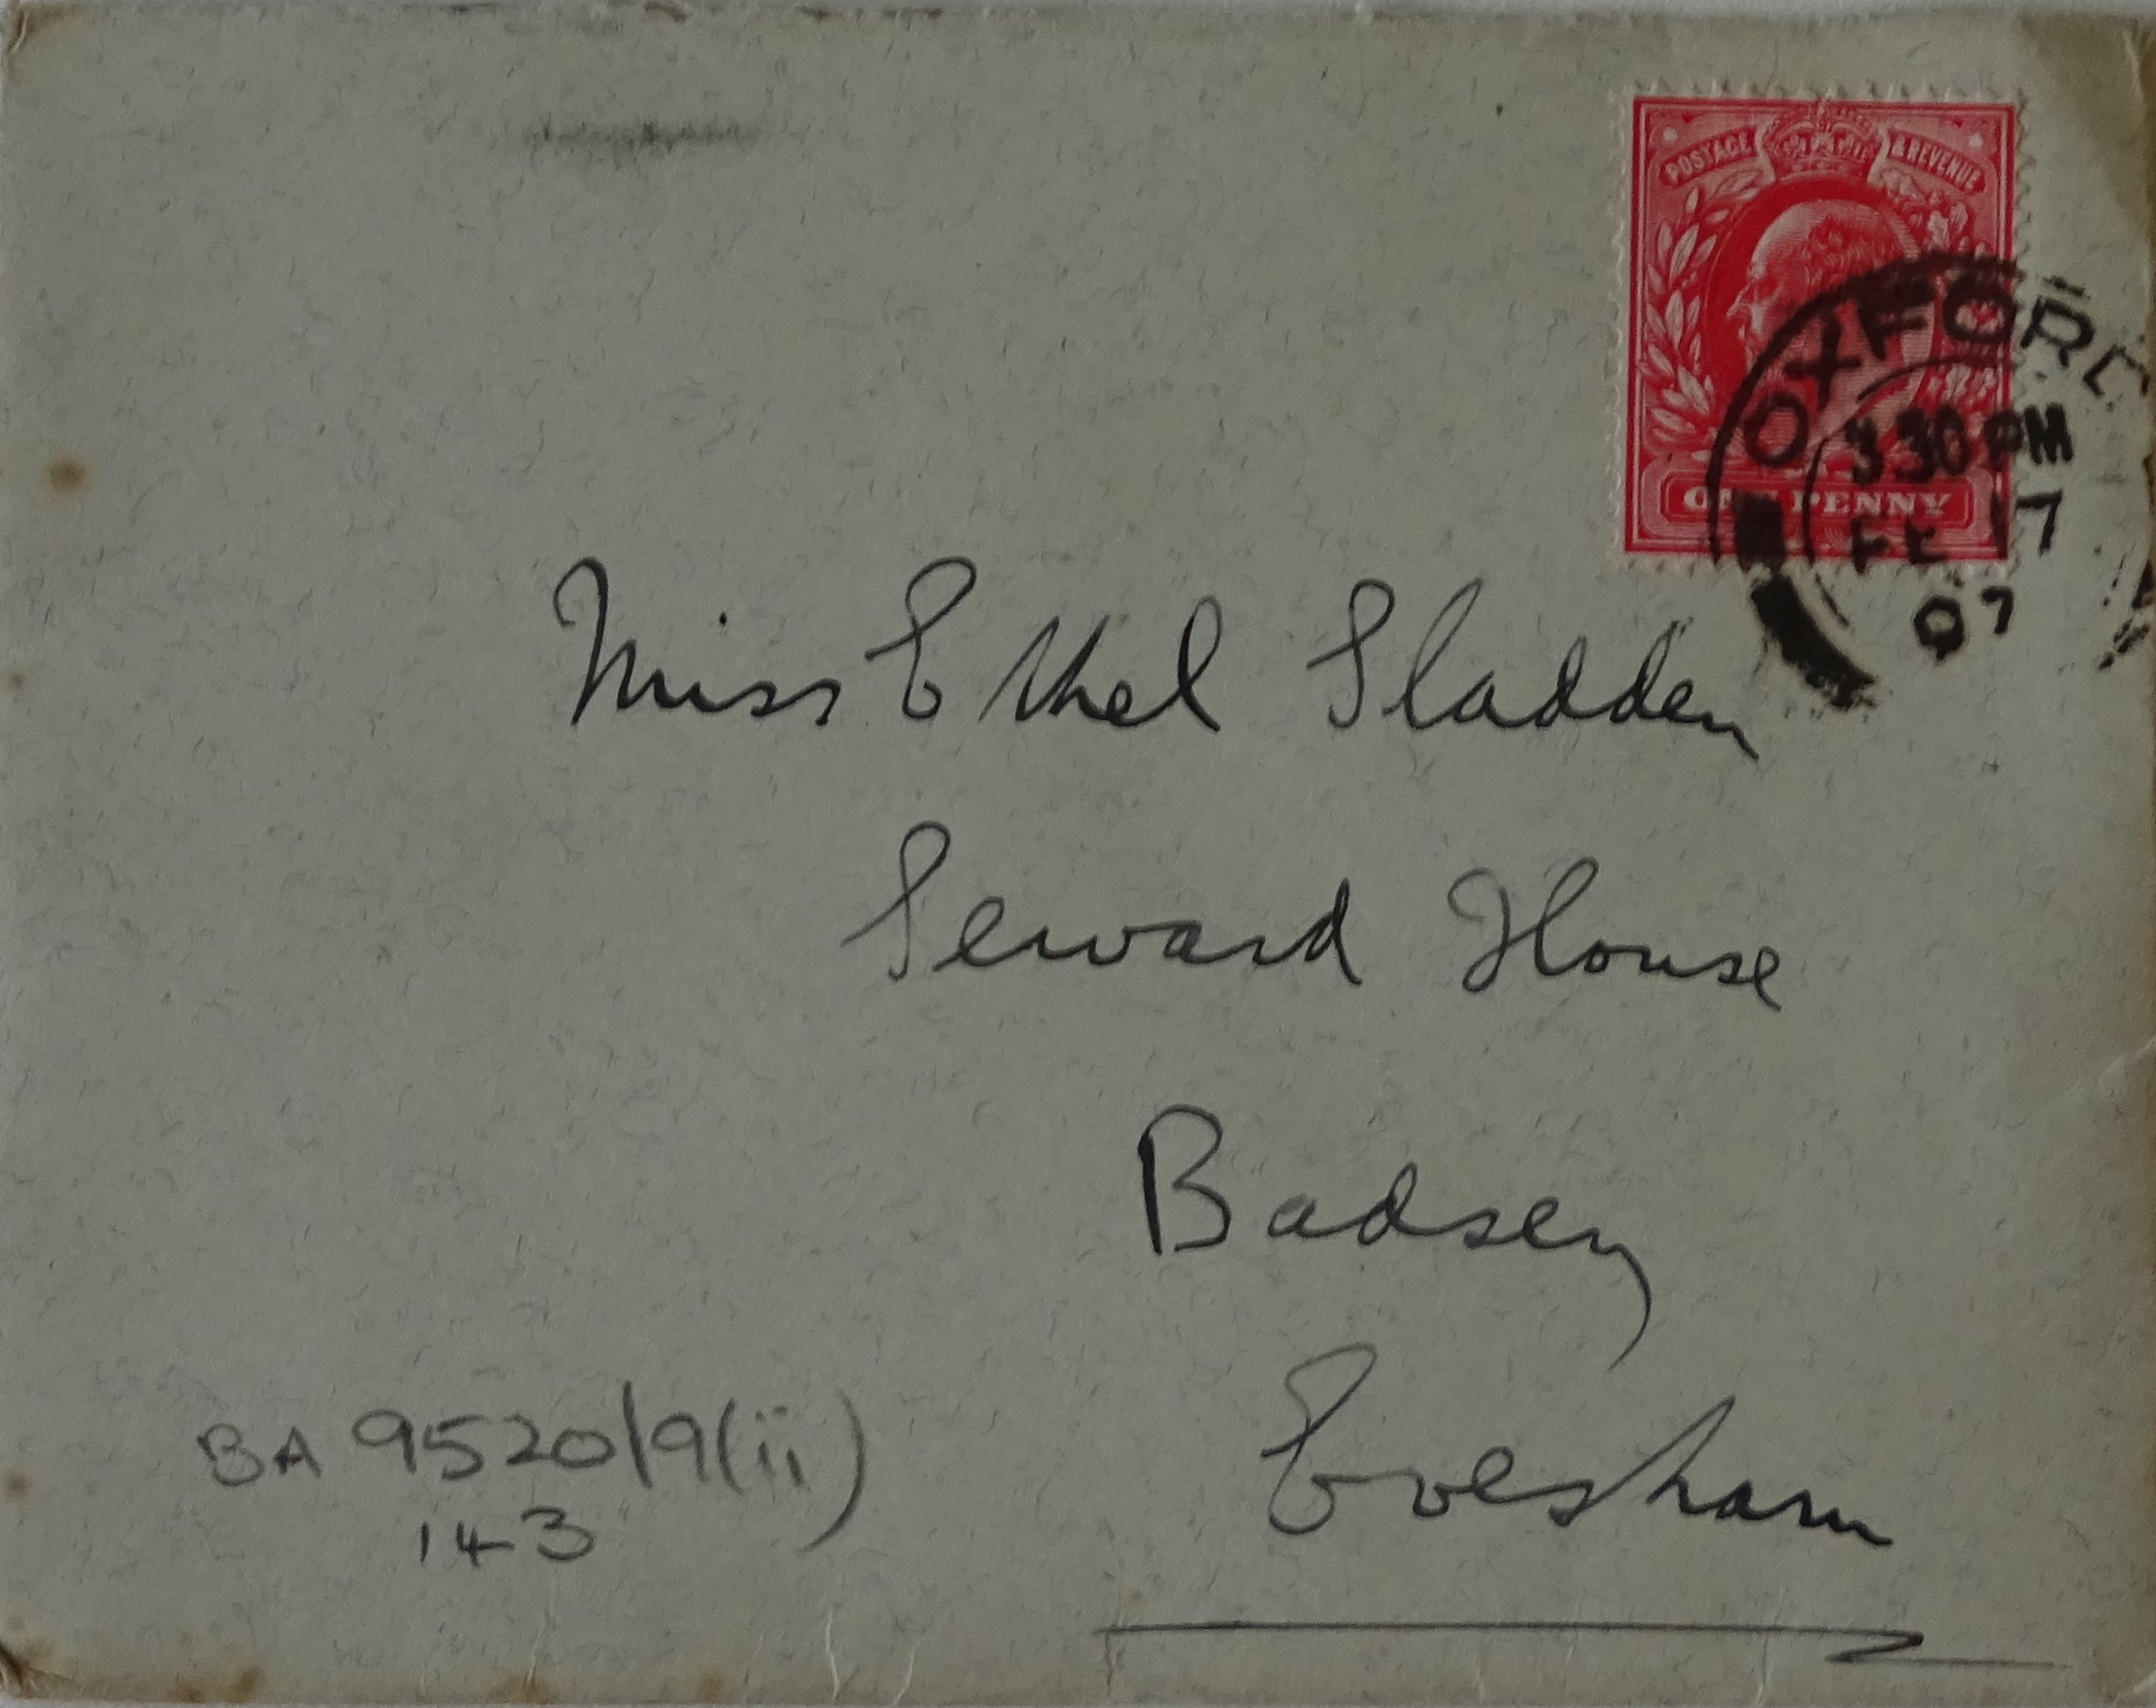 POSTAGE & REVENUE
ONE PENNY
OXFORD
3 30 PM
FE 17
07
Miss Ethel Sladden
Seward House
Badsey
Evesham
BA 9520/9(ii)
143